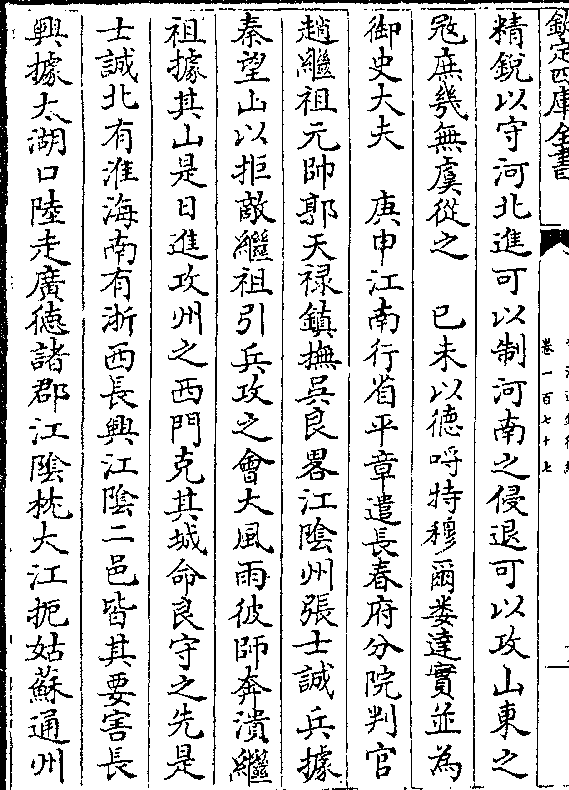 欽定四庫全書
卷一百七十七
精銳以守河北進可以制河南之侵退可以攻山東之
冦庶幾無虞從之　己未以德哷特穆爾婁達實並為
御史大夫　庚申江南行省平章遣長春府分院判官
趙繼祖元帥郭天祿鎮撫吳良畧江隂州張士誠兵據
秦望山以拒敵繼祖引兵攻之會大風雨彼師奔潰繼
祖據其山是日進攻州之西門克其城命良守之先是
士誠北有淮海南有浙西長興江隂二邑皆其要害長
興據太湖口陸走廣德諸郡江隂枕大江扼姑蘇通州